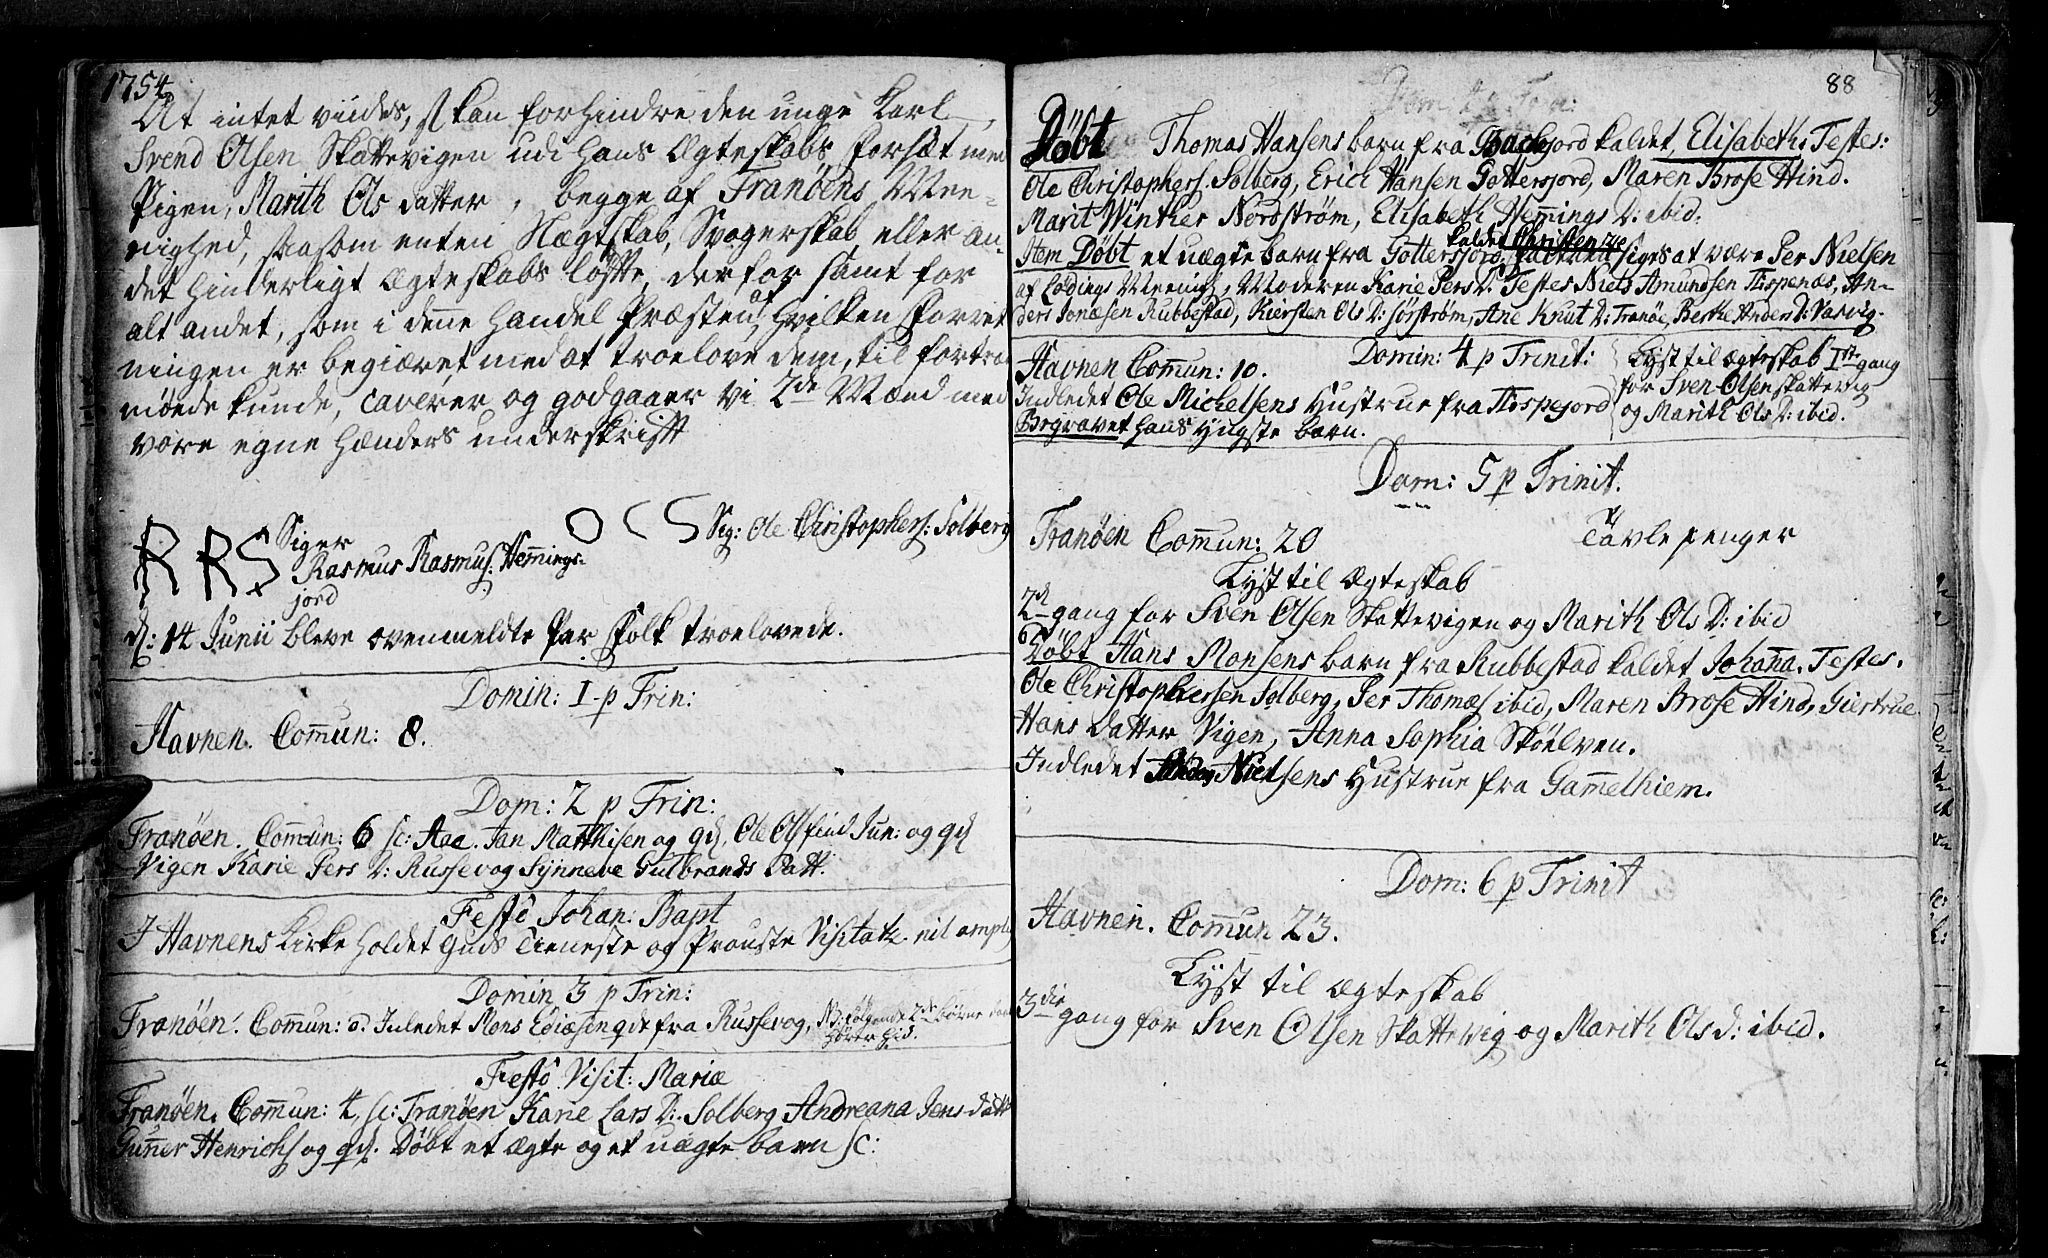 1754
At intet viides, som kan forhindre den unge Karl,
Svend Olsen Skattevigen udi hans Ægteskabs forsæt med
Pigen, Marith Ols datter, begge af Tranøens Mee-
nighed, saasom enten Slægtskab, Svogerskab, eller an-
det hinderligt Ægteskabs løfte, derfor samt for
alt andet, som i deñe handel Præsten, af hvilken forret
ningen er begiæret med at troelove dem, til fortræd
møede kunde, caverer og godgaaer vi 2de Mænd med
vore egne hænders underskrift
RRS Siger
Rasmus Rasmus: Hem̃ings-
jord
OCS Sig: Ole Christophers: Solberg
d: 14 Junii bleve ovenmeldte Par folk troelovede.
Domin: 1 p Trin:
Havnen. Com̃un: 8.
Dom: 2 p Trin:
Tranøen. Com̃un: 6 sc: Aae. Jan Matthisen og qd. Ole Olsfind Jun: og qd
Vigen Karie Pers D: Russevog Synneve Gulbrands Datt:
Festo Johan: Bapt
I Havnens Kirke holdet Guds Tieneste og Prouste Visitatz. nil ampli
Domin 3 p Trin:
Tranøen. Com̃un: 0. Inledet Mons Ediæsen qde fra Russevog, NB: følgende 2de børns daab
hører hid.
Festo Visit: Mariæ
Tranøen. Com̃un: 4. sc: Tranøen Karie Lars D: Solberg Andreana Jens datt
Guñer Henrichs og qd. Døbt et ægte og et uægte barn sc:
88
Døbt Thomas Hansens barn fra Bachejord kaldet, Elisabeth: Testes:
Ole Christophers: Solberg, Erich Hansen Gottersjord, Maren Brose Hind.
Marit Winther Nordstrøm, Elisabeth Hem̃ings D: ibid:
kaldet Christen
Item Døbt et uægte barn fra Gottersjord, siges at være Per Nielsen
af Lødings Menigh, Moderen Karie Pers D: Testes Niels Amundsen Tispenæs, An-
ders Jonæsen Rubbestad, Kiersten Ols D: Sørstrøm, Ane Knut D: Tranøe, Berthe Anders D: Vasvig.
Domin: 4 p Trinit:
Havnen Com̃un: 10.
Indledet Ole Michelsens Hustrue fra Tispejord
Begravet hans yngste barn.
Lyst til ægteskab 1ste gang
for Sven Olsen Skattevig
og Marith Ols D: ibid.
Dom: 5 p Trinit.
Tranøen Com̃un: 20 Tavle penger
Lyst til Ægteskab
2d gang for Sven Olsen Skattevigen og Marith Ols D: ibid
Døbt Hans Monsens barn fra Rubbestad kaldet Johaña. Testes.
Ole Christophersen Solberg, Per Thomæs ibid, Maren Brose Hind, Giertrue
Hans datter Vigen, Anna Sophia Skøelven.
Indledet Nielsens Hustrue fra Gam̃elhiem.
Dom: 6 p Trinit
Havnen. Com̃un 23.
Lyst til ægteskab
3die gang for Sven Olsen Skattevig og Marith Ols d: ibid.